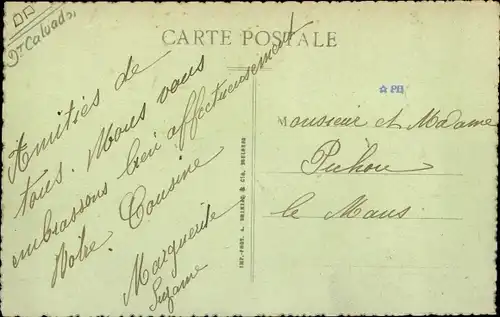 Dt Calvados
CARTE POSTALE
Amitiés de
tous. Nous vous
embrassons bien affectueusement
Votre Cousine
Marguerite
Suzanne
PH
Monsieur et Madame
Pichon
le Mans